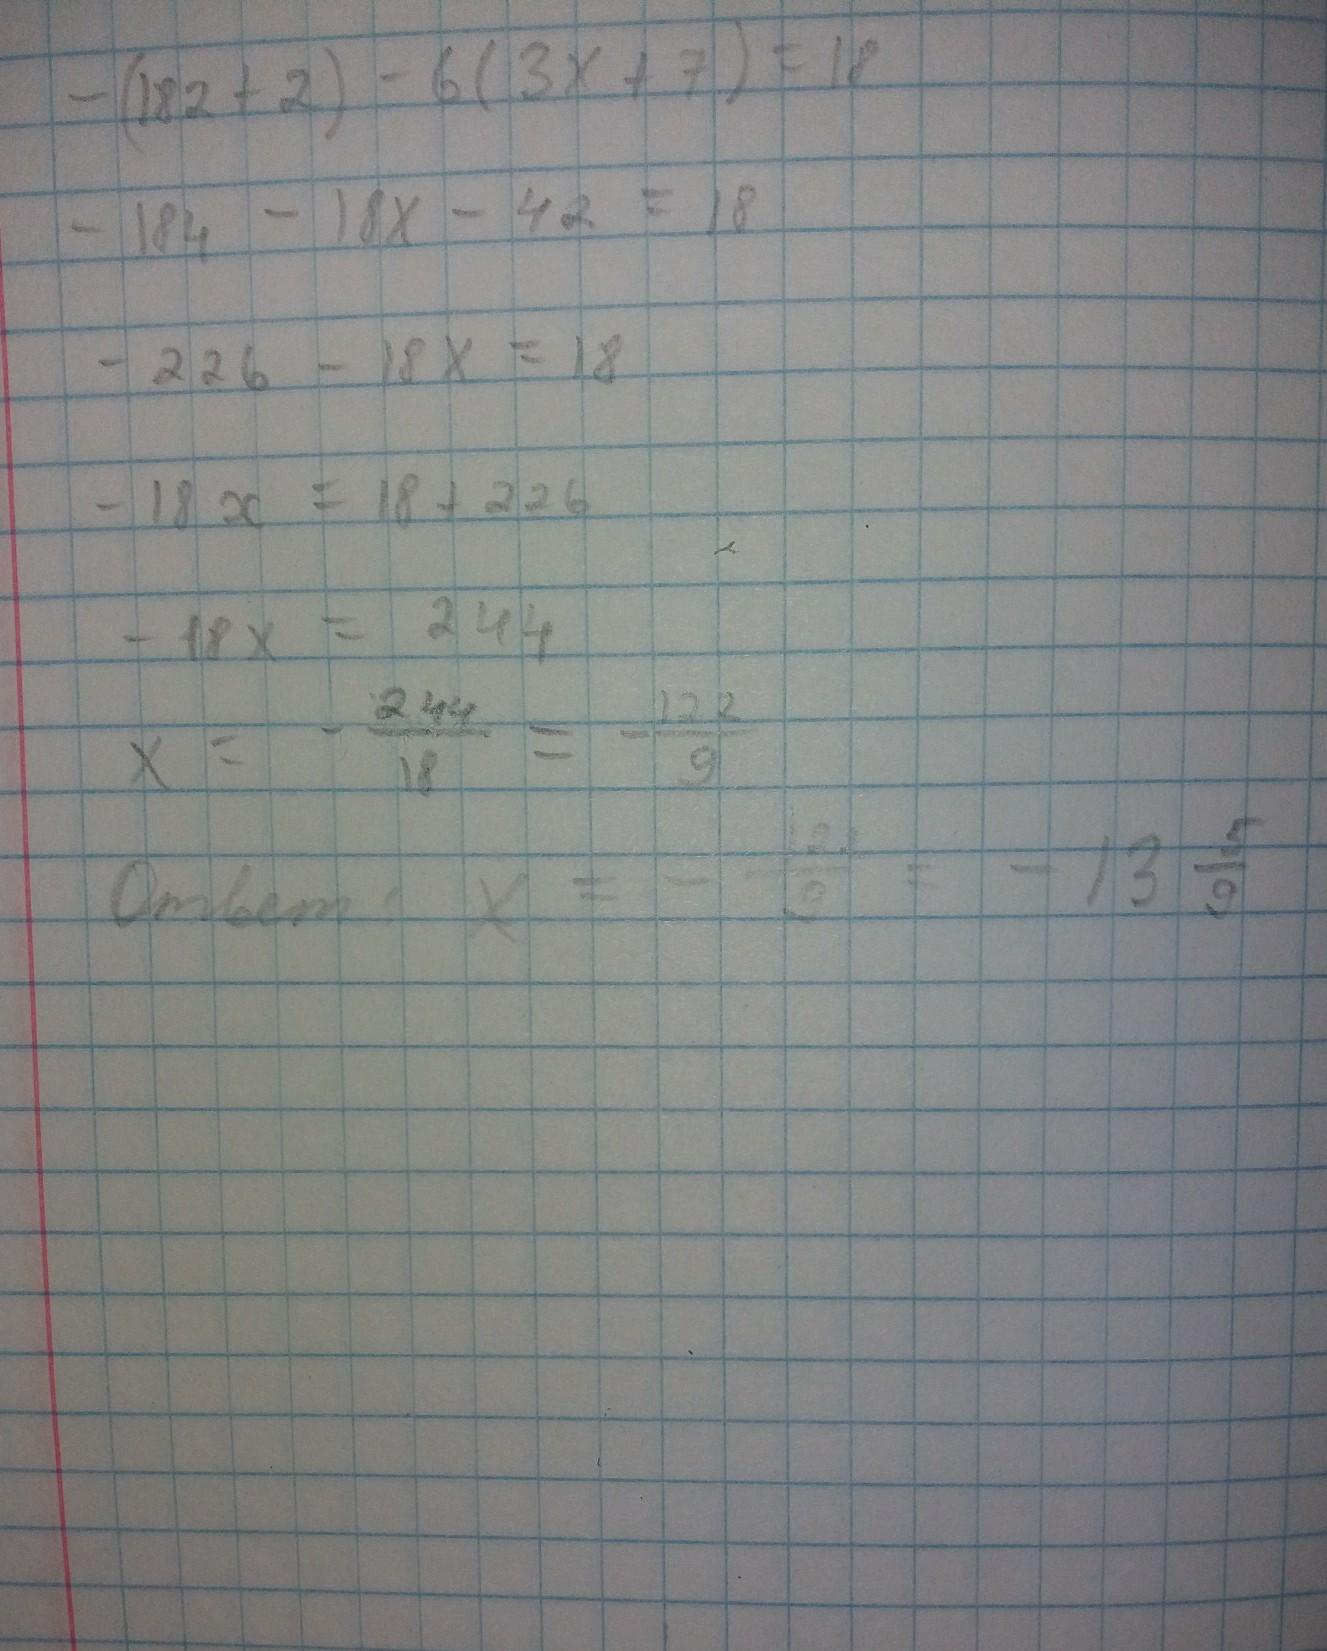 -(182+2)-6(3x+7)=18
-184-18x-42=18
-226-18x=18
-18x=18+226
-18x=244
x=-244/18=-122/9
Ответ: x=-122/9=-13 5/9